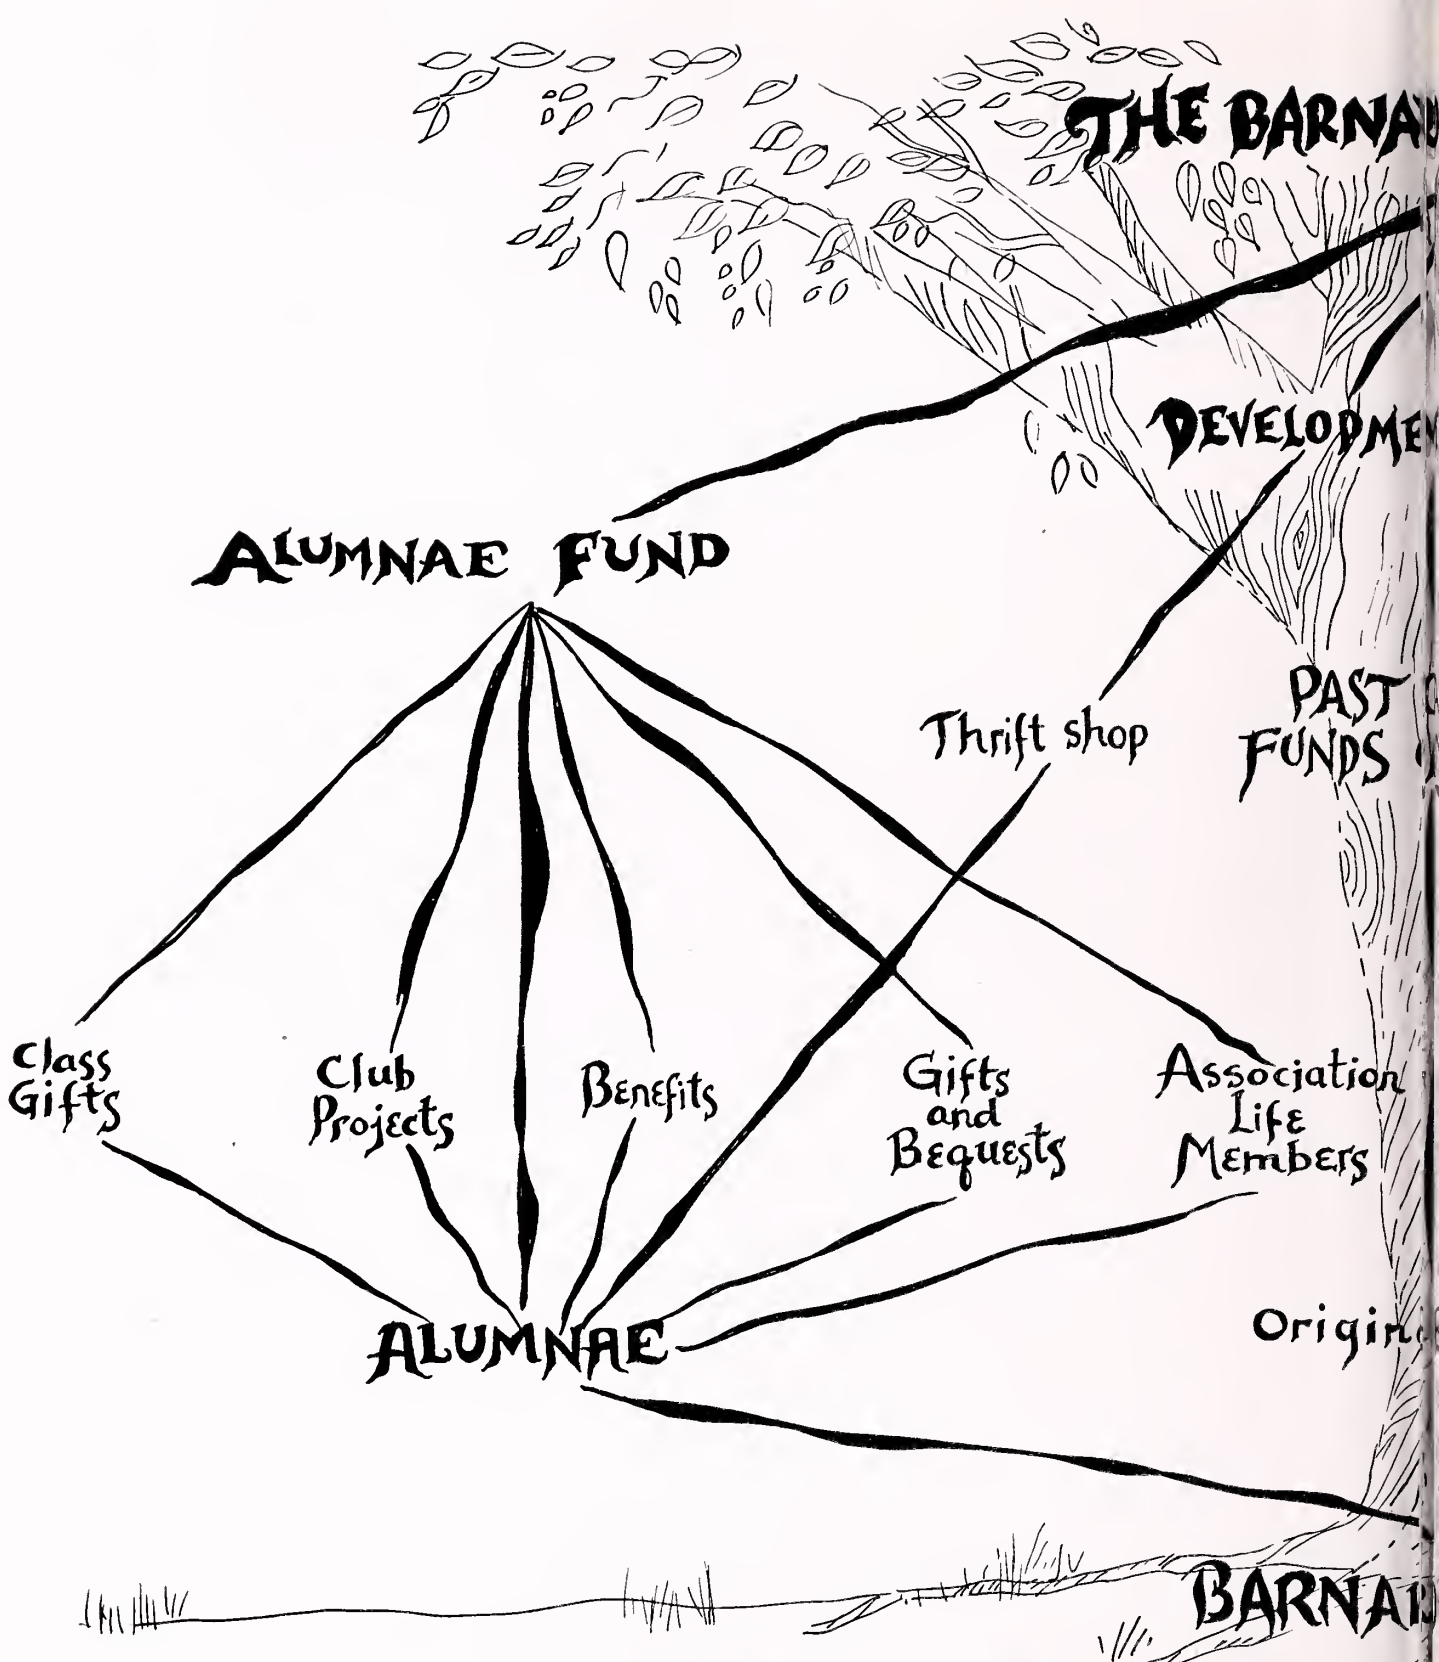 THE BARNA
DEVELOPMEN
ALUMNAE FUND
Thrift shop
PAST
FUNDS
Class
Gifts
Club
Projects
Benefits
Gifts
and
Bequests
Association
Life
Members
Origin
ALUMNAE
BARNA